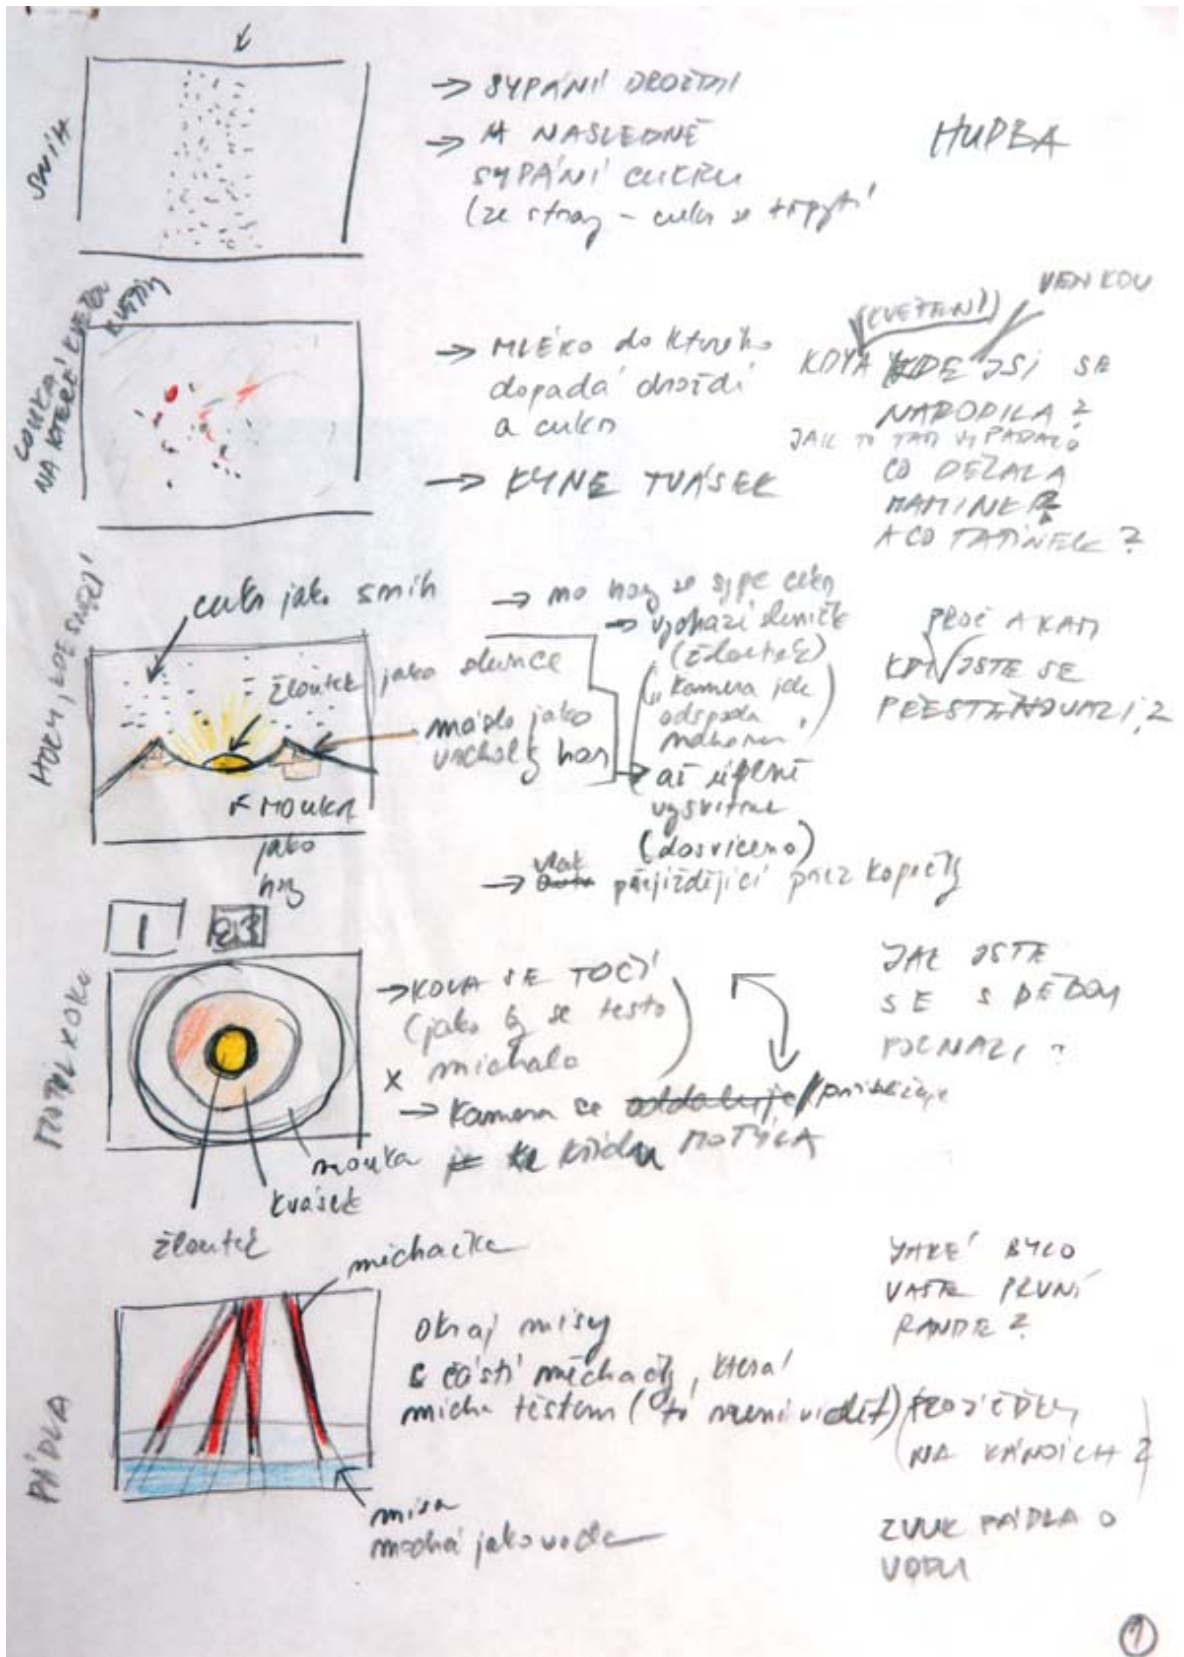 SNÍH
→ SYPÁNÍ DROŽDÍ
→ A NÁSLEDNĚ
SYPÁNÍ CUKRU
(ze strany - cukr se třpytí
HUDBA
LOUKA
NA KTERÉ KVETOU
KVĚTINY
→ MLÉKO do kterého
dopadá droždí
a cukr
→ KYNE KVÁSEK
(KVĚTEN?)
VENKOV
KDY A KDE JSI SE
NARODILA?
JAK TO TAM VYPADALO
CO DĚLALA
MAMINKA?
A CO TATÍNEK?
HORY, KDE SNĚŽÍ
cukr jako sníh
žloutek jako slunce
máslo jako
vrcholky hor
MOUKA
jako
hory
→ na hory se sype cukr
→ vychází sluníčko
(žloutek)
(„kamera jde
odspoda
nahoru"
→ až úplně
vysvitne
(dosvíceno)
→ vlak přejíždějící přes kopečky
PROČ A KAM
JSTE SE
PŘESTĚHOVALI?
1
→ KOLA SE TOČÍ
(jako by se těsto
míchalo
x
→ kamera se oddaluje / přibližuje
ke křídlu MOTÝLA
mouka
kvásek
žloutek
JAK JSTE
SE S DĚDOU
POZNALI?
PÁDLA
míchačka
okraj mísy
s částí míchačky, která
míchá těstem (to není vidět)
mísa
modrá jako voda
JAKÉ BYLO
VAŠE PRVNÍ
RANDE?
(PROJÍŽĎKY
NA KÁNOÍCH?)
ZVUK PÁDLA O
VODU
1